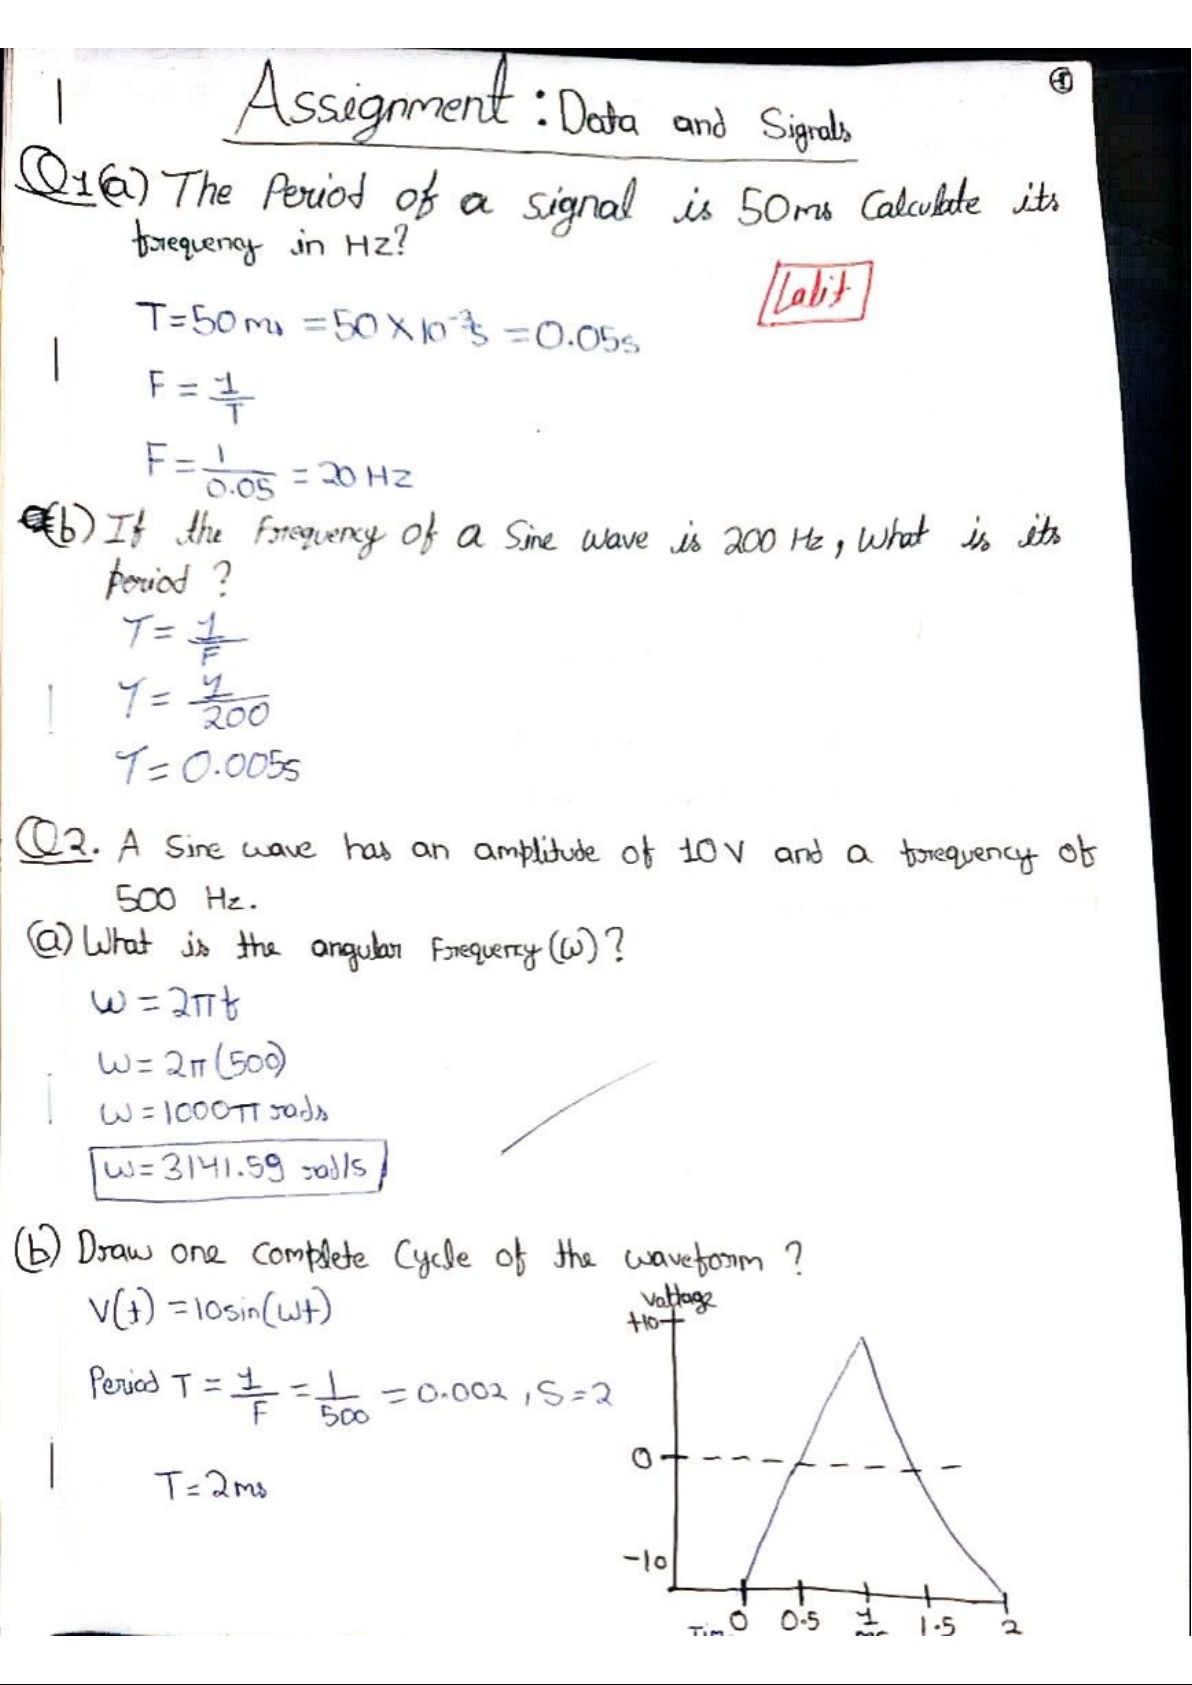 1
Assignment : Data and Signals
Q1(a) The Period of a signal is 50ms Calculate its
frequency in Hz?
Lalit
T=50 ms = 50 × 10⁻³s = 0.05s
F = 1/T
F = 1/0.05 = 20 HZ
(b) If the Frequency of a Sine wave is 200 Hz, What is its
period ?
T = 1/F
T = 1/200
T = 0.005s
Q2. A Sine wave has an amplitude of 10V and a frequency of
500 Hz.
(a) What is the angular Frequency (ω) ?
ω = 2πf
ω = 2π(500)
ω = 1000π rads
ω = 3141.59 rad/s
(b) Draw one complete Cycle of the waveform ?
V(t) = 10sin(ωt)
Period T = 1/F = 1/500 = 0.002 , S = 2
T = 2ms
Voltage
+10
0
-10
0 0.5 1 1.5 2
Tim